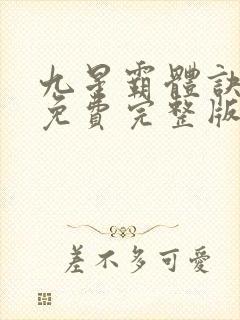 九星霸體訣
免費完整版
差不多可愛